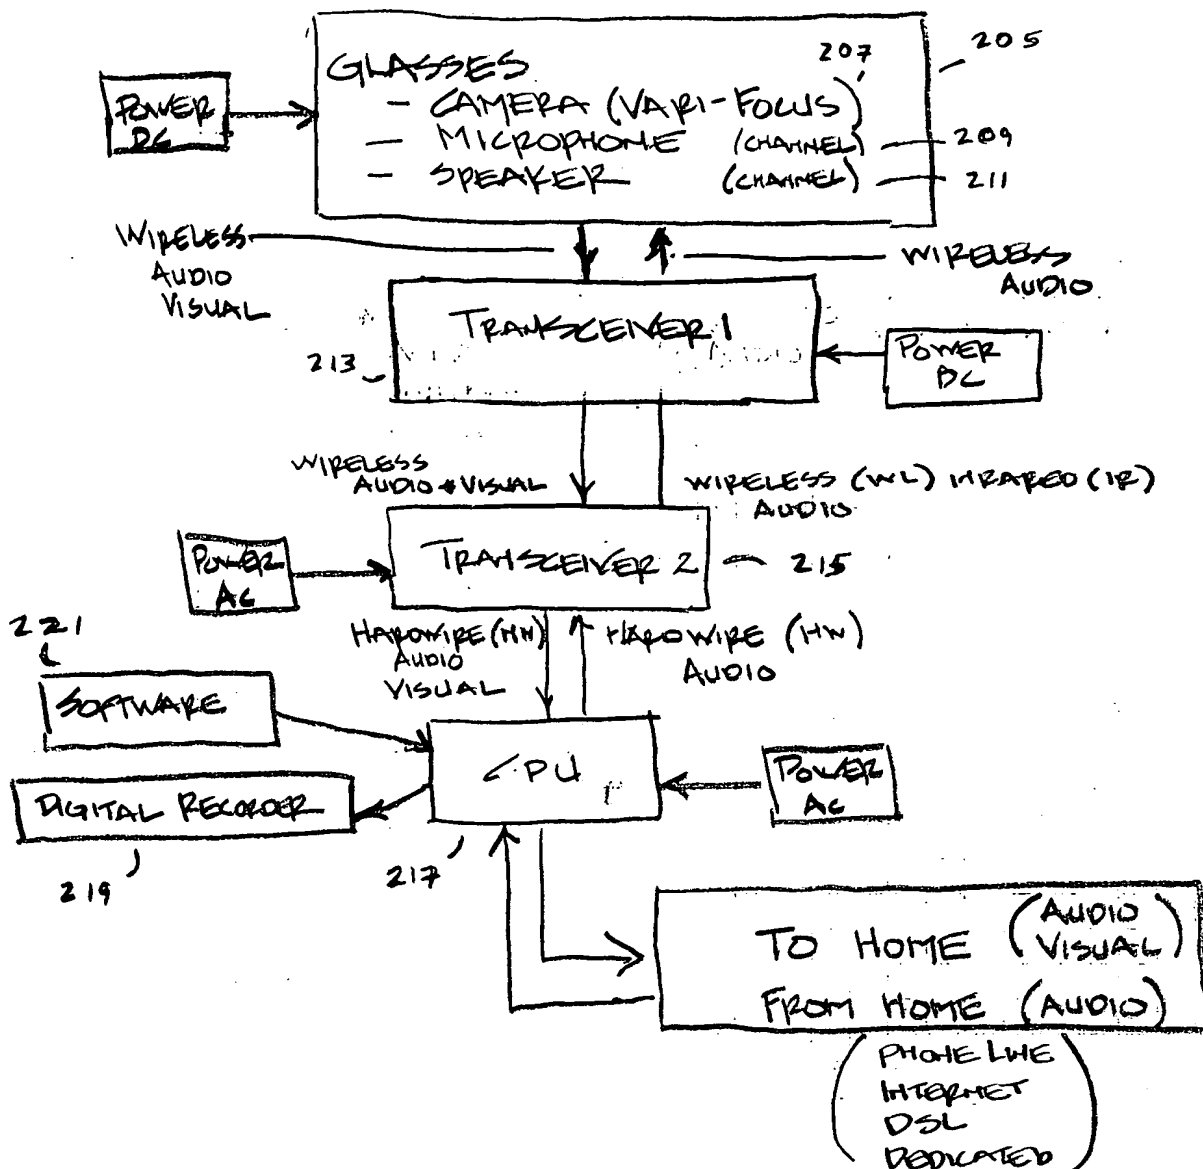 207
205
GLASSES
- CAMERA (VARI-FOCUS)
- MICROPHONE (CHANNEL)
209
- SPEAKER (CHANNEL)
211
POWER
DC
WIRELESS
AUDIO
VISUAL
WIRELESS
AUDIO
TRANSCEIVER 1
213
POWER
DC
WIRELESS
AUDIO & VISUAL
WIRELESS (WL) INRARED (IR)
AUDIO
TRANSCEIVER 2
215
POWER
AC
HARDWIRE (HW)
AUDIO
VISUAL
HARDWIRE (HW)
AUDIO
221
SOFTWARE
CPU
POWER
AC
DIGITAL RECORDER
219
217
TO HOME (AUDIO
VISUAL)
FROM HOME (AUDIO)
(PHONE LINE
INTERNET
DSL
DEDICATED)